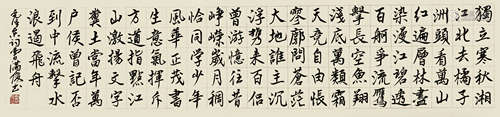 獨立寒秋湘
江北去橘子
洲頭看萬山
紅遍層林盡
染漫江碧透
百舸爭流鷹
擊長空魚翔
淺底萬類霜
天競自由悵
寥廓問蒼茫
大地誰主沉
浮攜來百侶
曾遊憶往昔
崢嶸歲月稠
恰同學少年
風華正茂書
生意氣揮斥
方遒指點江
山激揚文字
糞土當年萬
戶侯曾記否
到中流擊水
浪遏飛舟
毛澤東詞